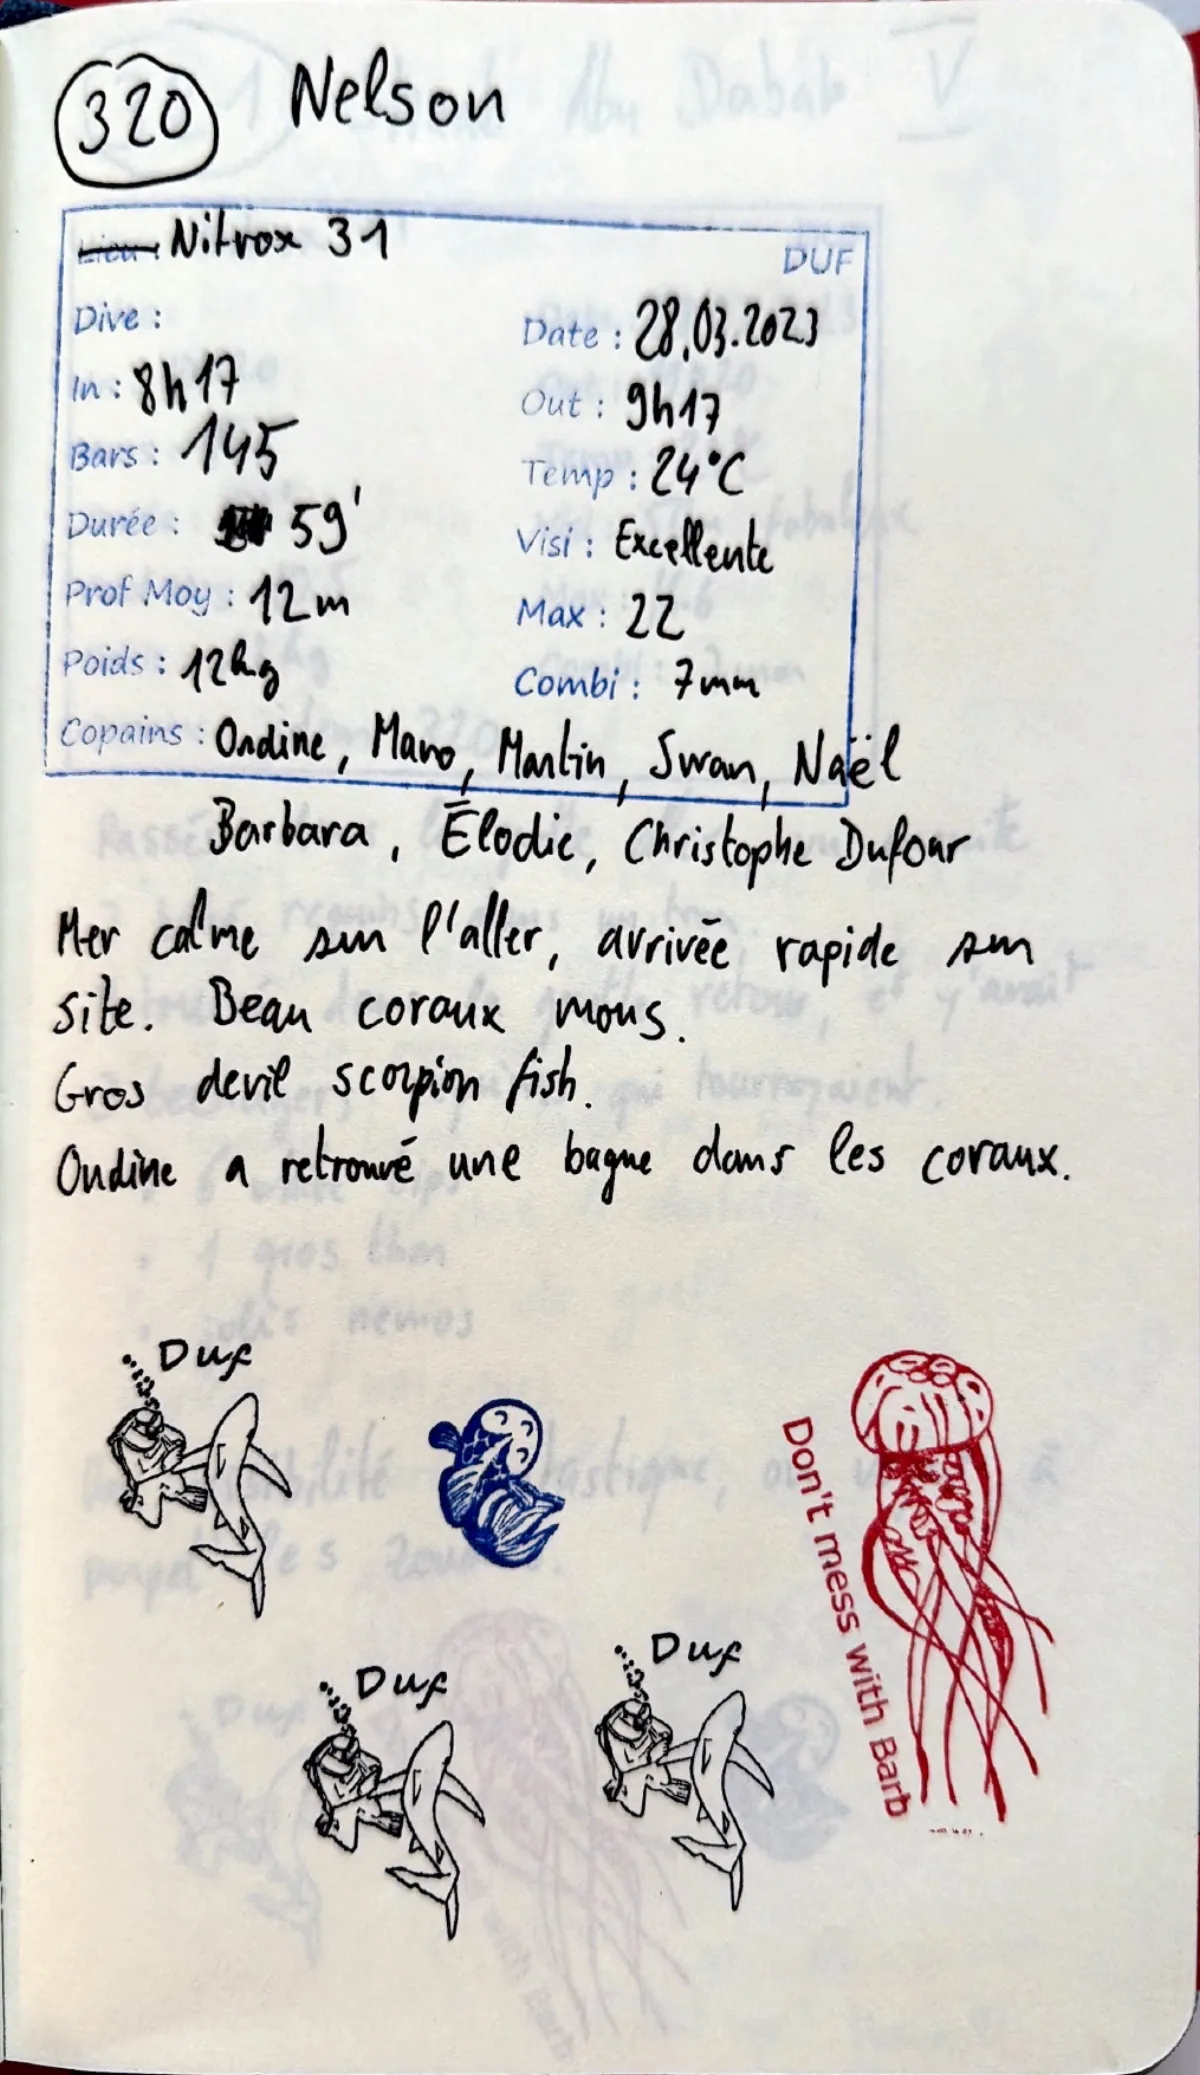 320 Nelson
Lieu : Nitrox 31
DUF
Dive :
Date : 28.03.2023
In : 8h17
Out : 9h17
Bars : 145
Temp : 24°C
Durée : 59'
Visi : Excellente
Prof Moy : 12m
Max : 22
Poids : 12kg
Combi : 7mm
Copains : Ondine, Mano, Martin, Swan, Naël
Barbara, Élodie, Christophe Dufour
Mer calme sur l'aller, arrivée rapide sur
site. Beau coraux mous.
Gros devil scorpion fish.
Ondine a retrouvé une bague dans les coraux.
Duf
Don't mess with Barb
Duf
Duf